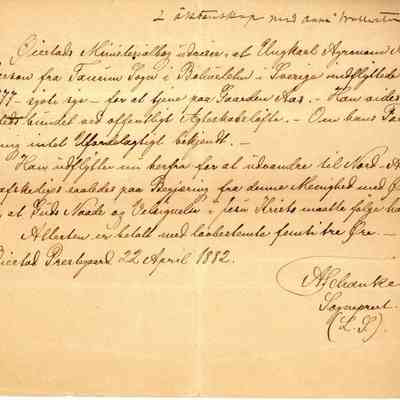 2 äktenskap med anna
Eiestads Ministerialbog udviser, at Ungkarl Agremann
fra Tanum Sogn i Bahuslehn i Sverige indflyttede
77 - syv - for at tjene paa Gaarden Aas. - Han
bunden ved offentligt Ægteskabsløfte. - Om hans
intet Ufordelagtigt bekjendt. -
Han udflytter nu herfra for at udvandre til Nord-A
afskediges saaledes paa Begjæring fra denne Menighed med Ø
, at Guds Naade og Velsignelse i Jesu Kristo maatte følge ha
Attesten er betalt med lovbestemte femti tre Øre. -
Prestegaard 22 April 1882.
Sogneprest
(L. S.)